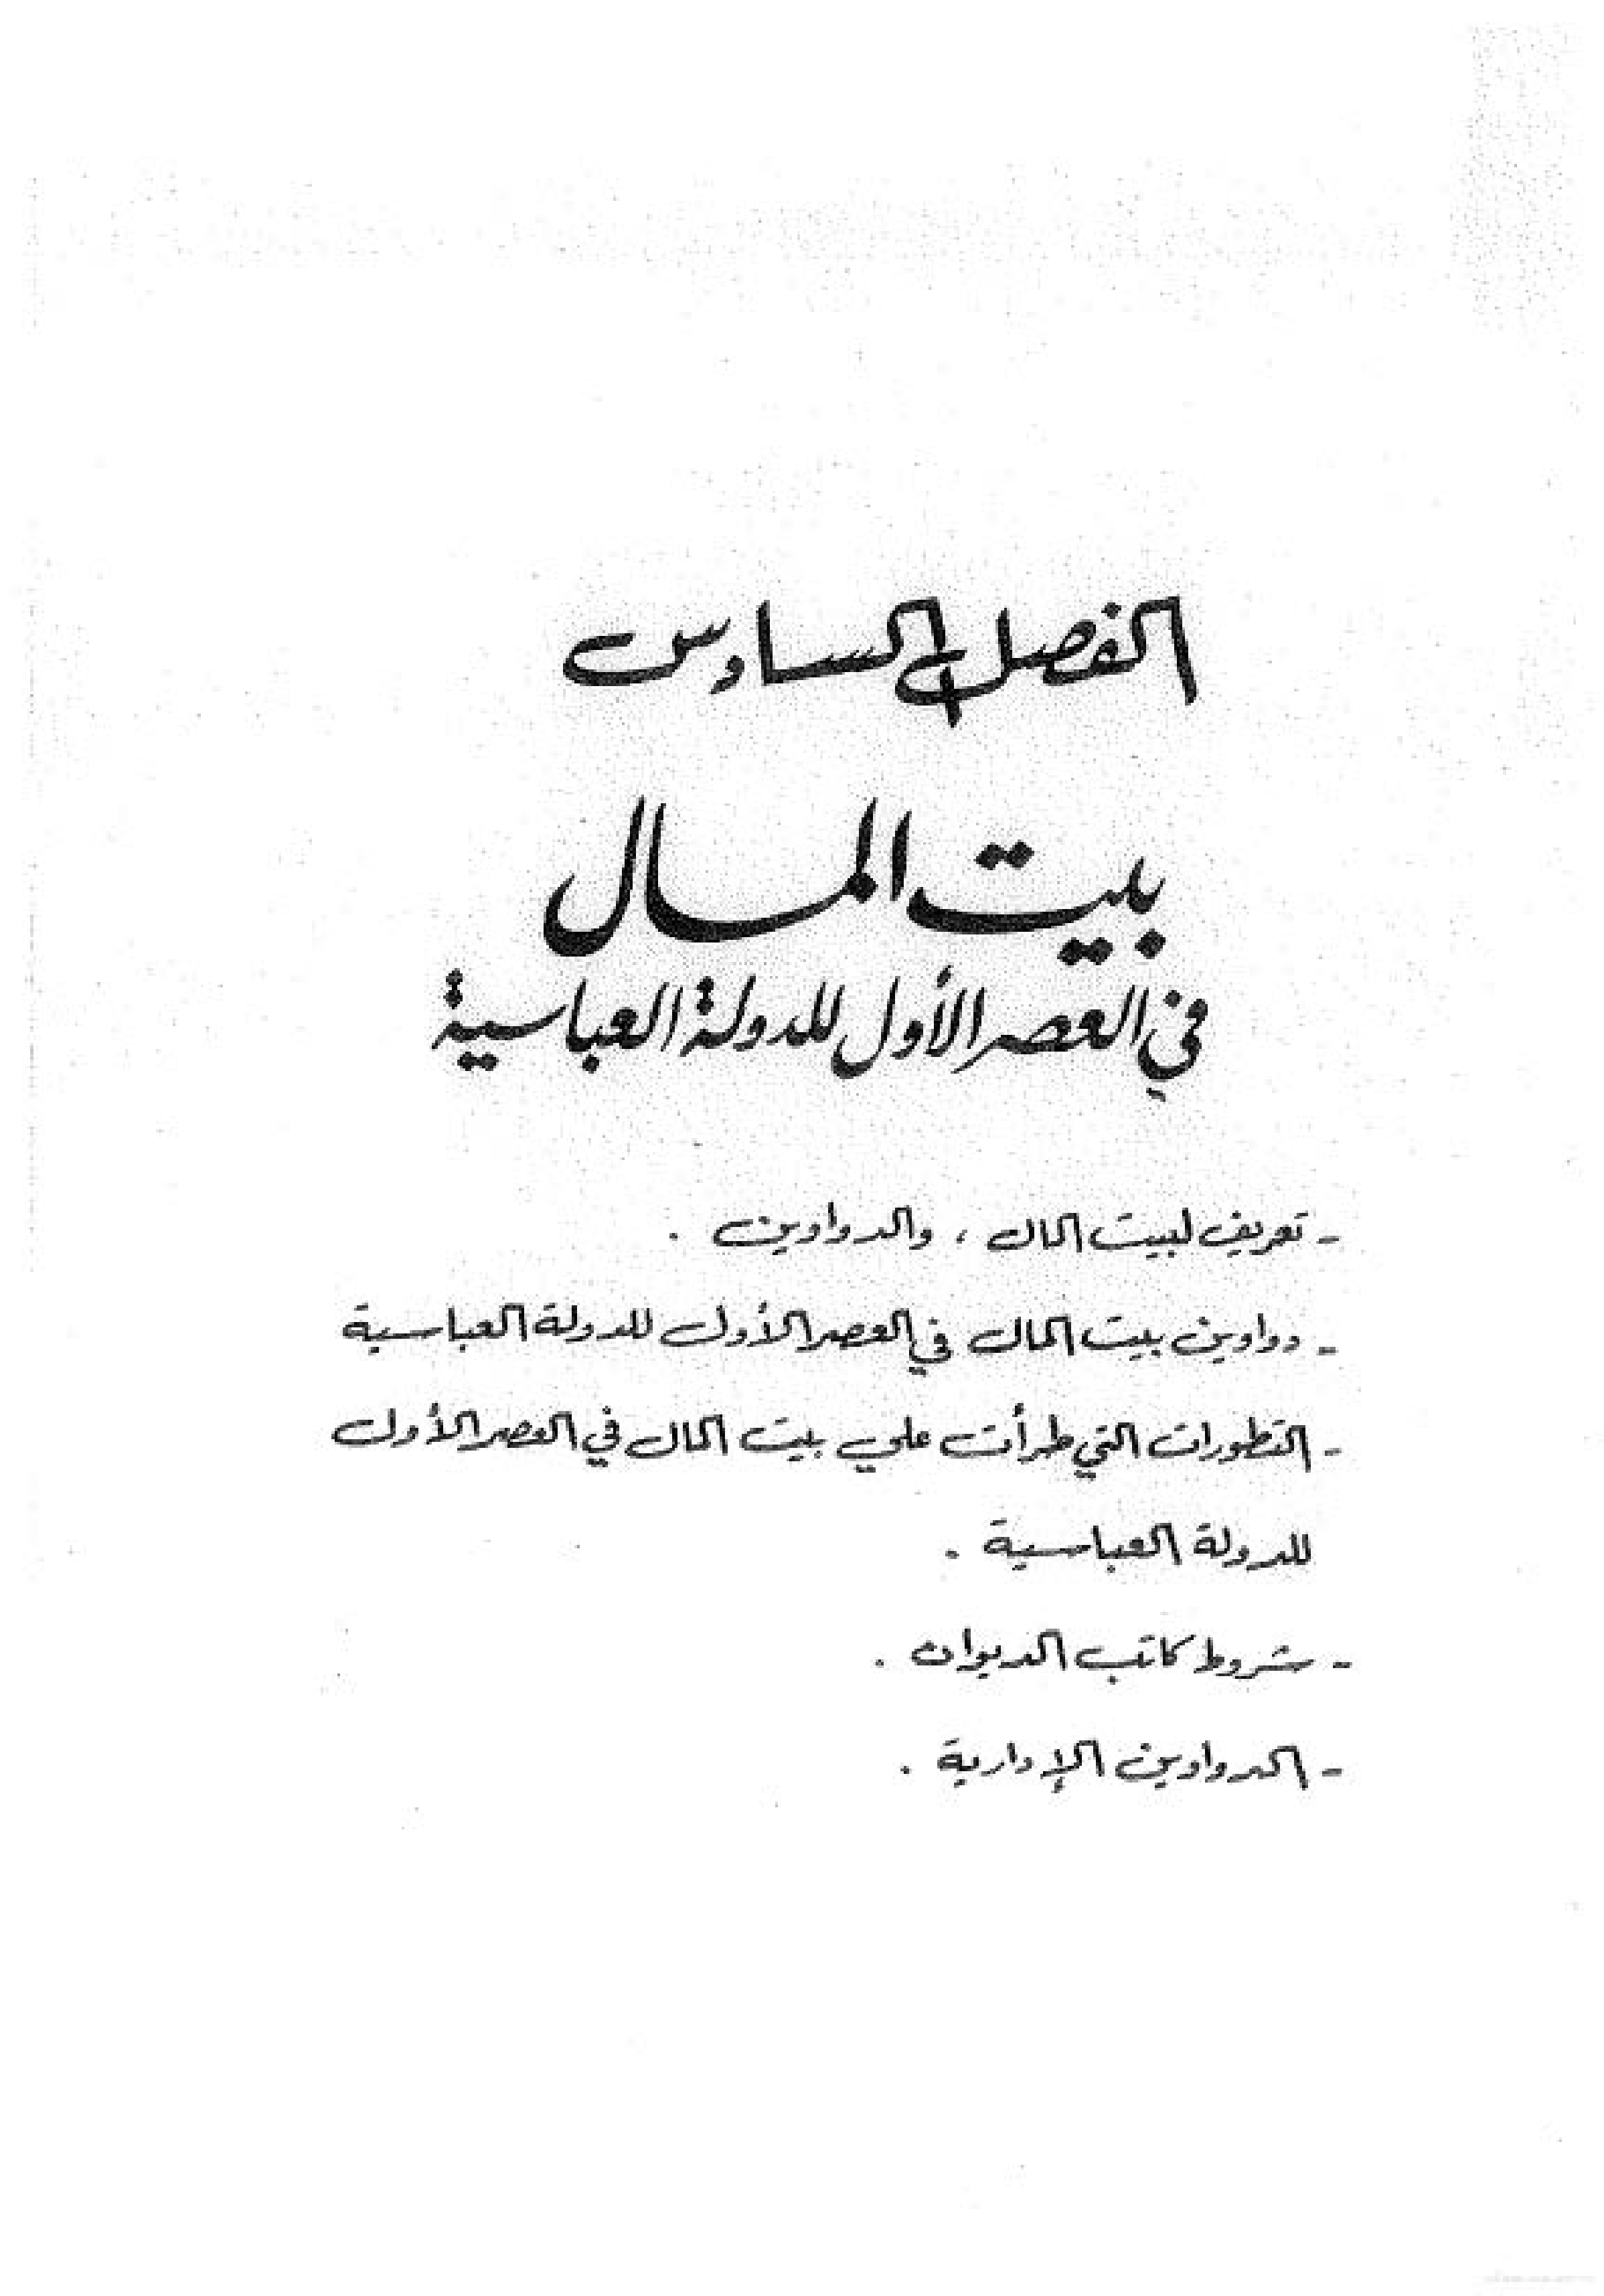 الفصل السادس
بيت المال
في العصر الأول للدولة العباسية
- تعريف لبيت المال ، والدواوين .
- دواوين بيت المال في العصر الأول للدولة العباسية
- التطورات التي طرأت علي بيت المال في العصر الأول
للدولة العباسية .
- شروط كاتب الديوان .
- الدواوين الإدارية .